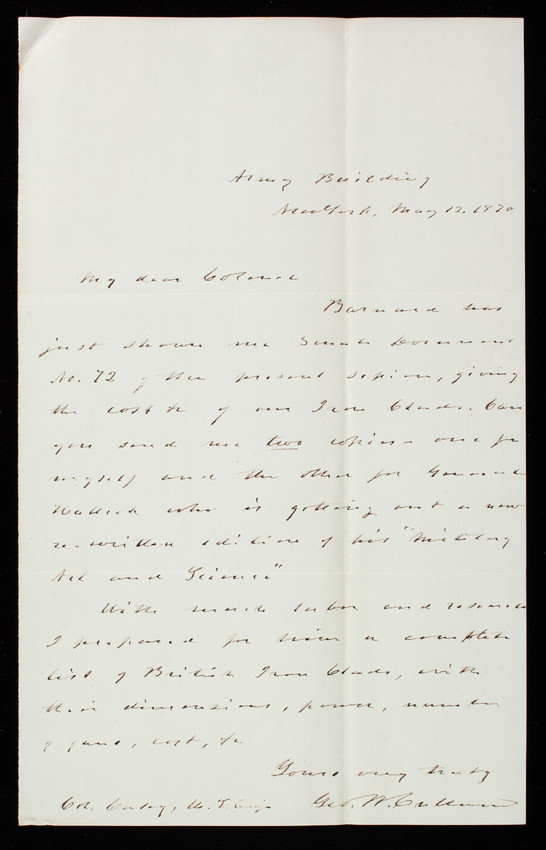 Army Building
New York, May 12. 1870
My dear Colonel
Barnard has
just shown me Senate Document
No. 72 of the present session, giving
the cost &c of our Iron Clads. Can
you send me two copies - one for
myself and the other for General
Halleck who is getting out a new
re-written edition of his "Military
Art and Science"
With much labor and research
I prepared for him a complete
list of British Iron Clads, with
their dimensions, power, number
of guns, cost, &c
Yours very truly
Geo. W. Cullum
Col. Casey, U.S. Engs